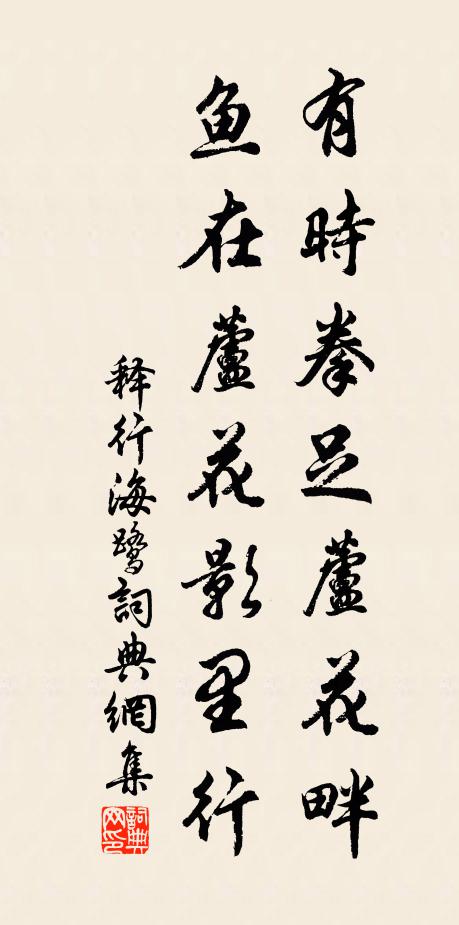 有時拳足蘆花畔
鱼在蘆花影里行
释行海鹭詞典網集
詞典网印